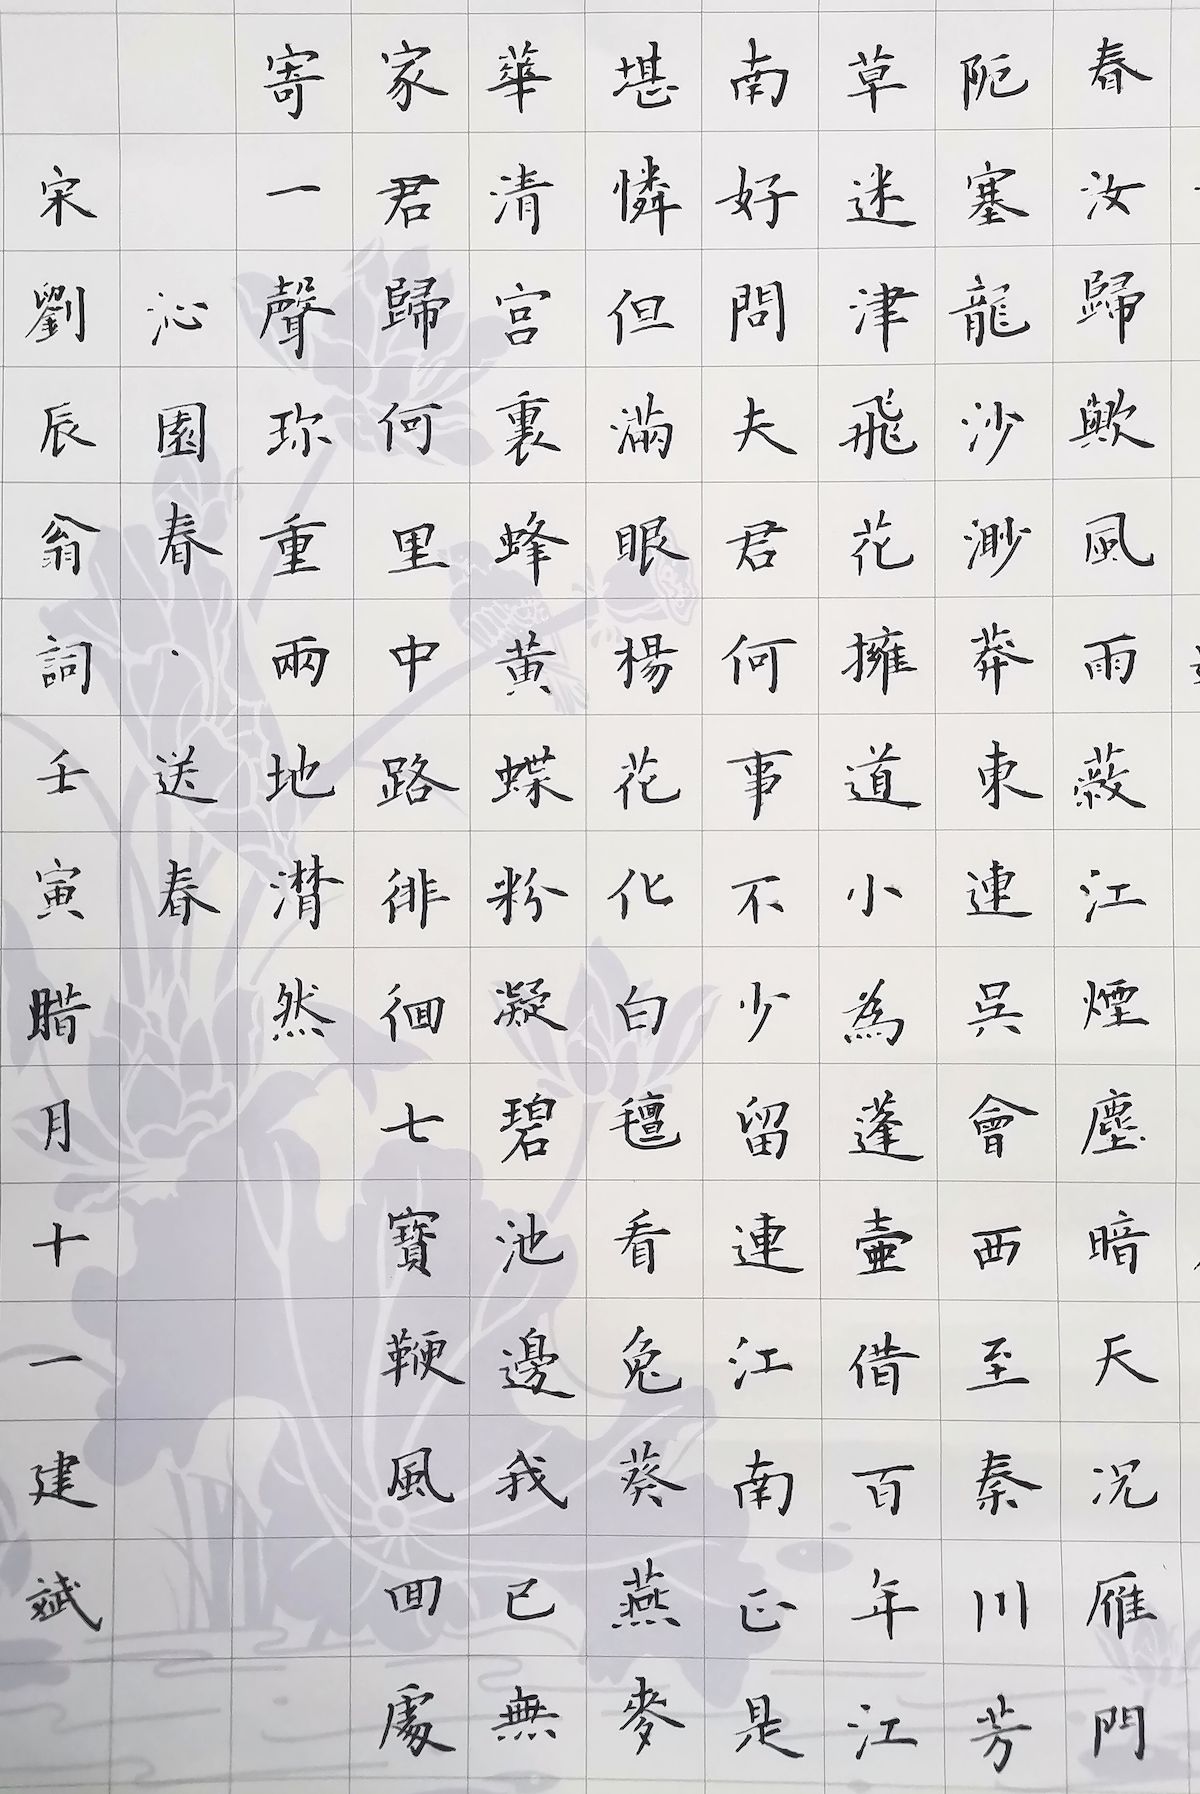 春汝歸歟風雨蔽江煙塵暗天況雁門
阨塞龍沙渺莽東連吳會西至秦川芳
草迷津飛花擁道小為蓬壺借百年江
南好問夫君何事不少留連江南正是
堪憐但滿眼楊花化白氊看兔葵燕麥
華清宮裏蜂黃蝶粉凝碧池邊我已無
家君歸何里中路徘徊七寶鞭風回處
寄一聲珎重兩地潸然
沁園春·送春
宋劉辰翁詞壬寅腊月十一建斌